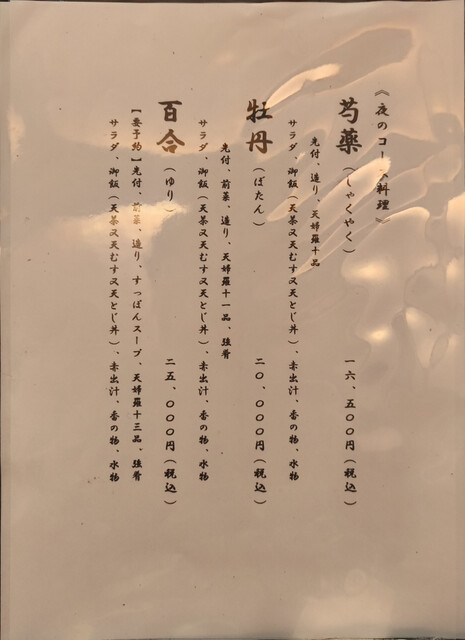 《夜のコース料理》
芍薬（しゃくやく） 一六、五〇〇円（税込）
先付、造り、天婦羅十品
サラダ、御飯（天茶又天むす又天とじ丼）、赤出汁、香の物、水物
牡丹（ぼたん） 二〇、〇〇〇円（税込）
先付、前菜、造り、天婦羅十一品、強肴
サラダ、御飯（天茶又天むす又天とじ丼）、赤出汁、香の物、水物
百合（ゆり） 二五、〇〇〇円（税込）
【要予約】先付、前菜、造り、すっぽんスープ、天婦羅十三品、強肴
サラダ、御飯（天茶又天むす又天とじ丼）、赤出汁、香の物、水物